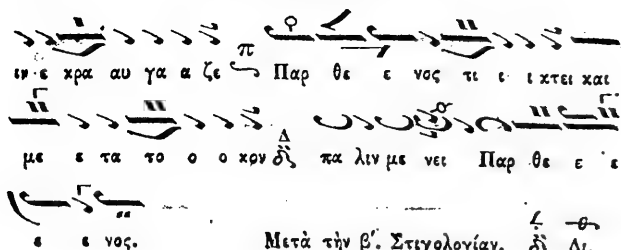 ιν ε κρα αυ γα α ζε π Παρ θε ε νος τι ε ι κτει και
με ε τα το ο ο κον Δ δι πα λιν με νει Παρ θε ε ε
ε ε νος. Μετὰ τὴν β΄. Στιχολογίαν. δι Δι.